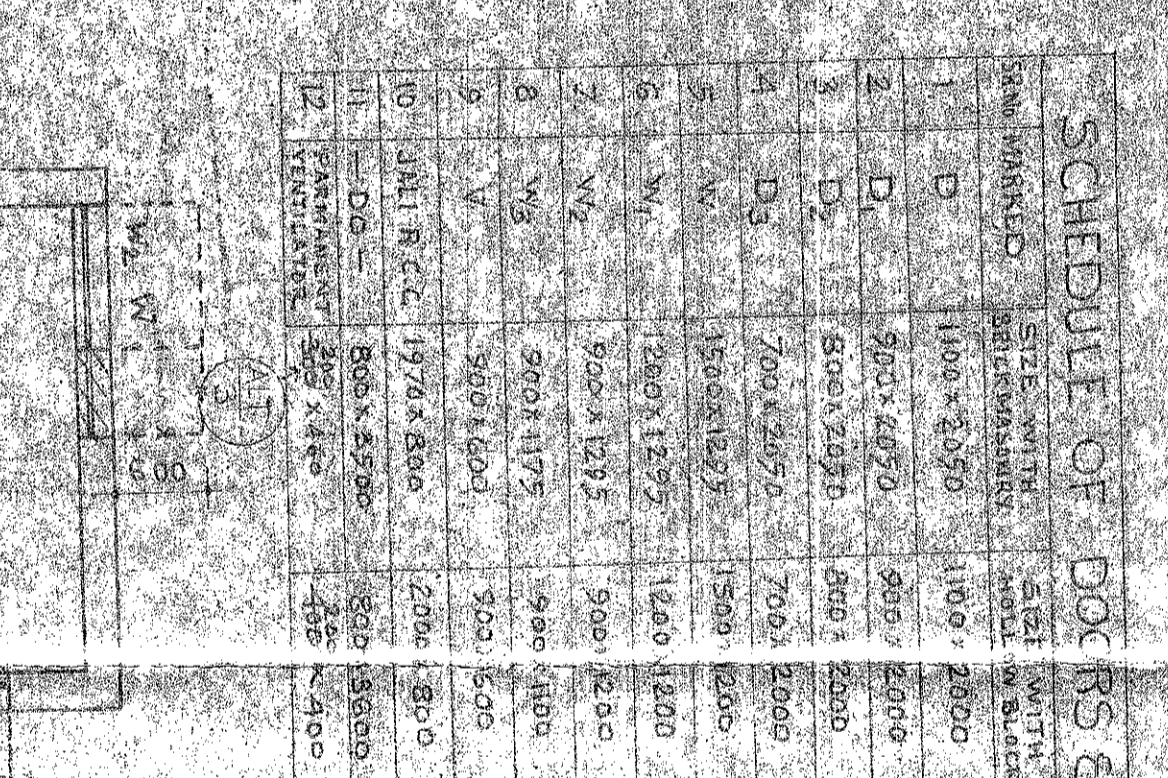 SCHEDULE OF DOORS &
SR.NO MARKED SIZE WITH BRICKMASONRY SIZE WITH HOLLOW BLOCK
1 D 1100 x 2050 1100 x 2000
2 D1 900 x 2050 900 x 2000
3 D2 800 x 2050 800 x 2000
4 D3 700 x 2050 700 x 2000
5 W 1500 x 1295 1500 1200
6 W1 1200 x 1295 1200 x 1200
7 W2 900 x 1295 900 1200
8 W3 900 x 1175 900 1100
9 V 900 x 600 900 600
10 JALI R.C.C. 1970 x 800 2000 800
11 — DO — 800 x 2500
12 PARMANENT VENTILATOR 200 x 400 200 x 400
ALT 3
W2 W